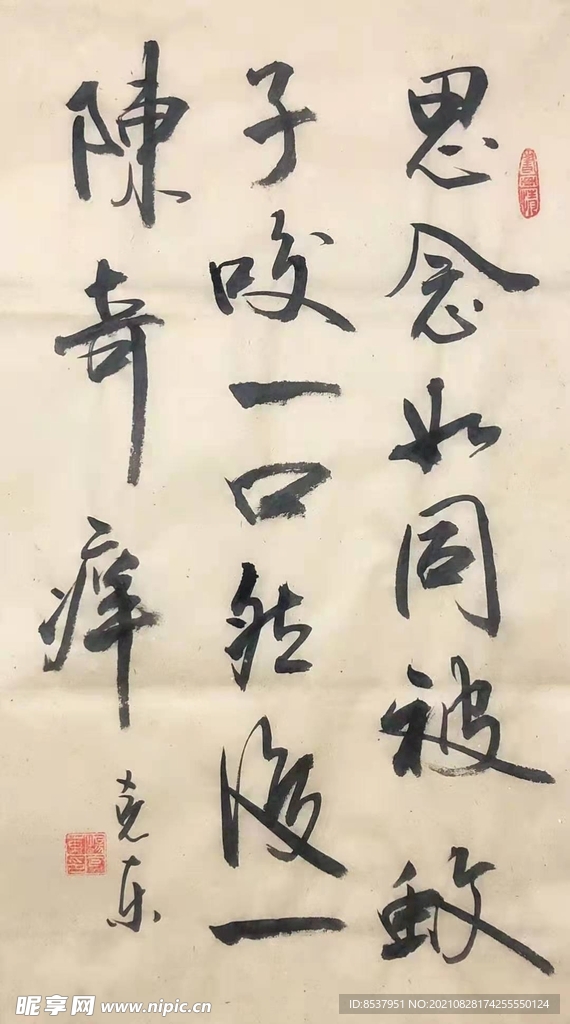 思念如同被蚊
子咬一口然後一
陳奇痒
克东
昵享网 www.nipic.cn
ID:8537951 NO:20210828174255550124